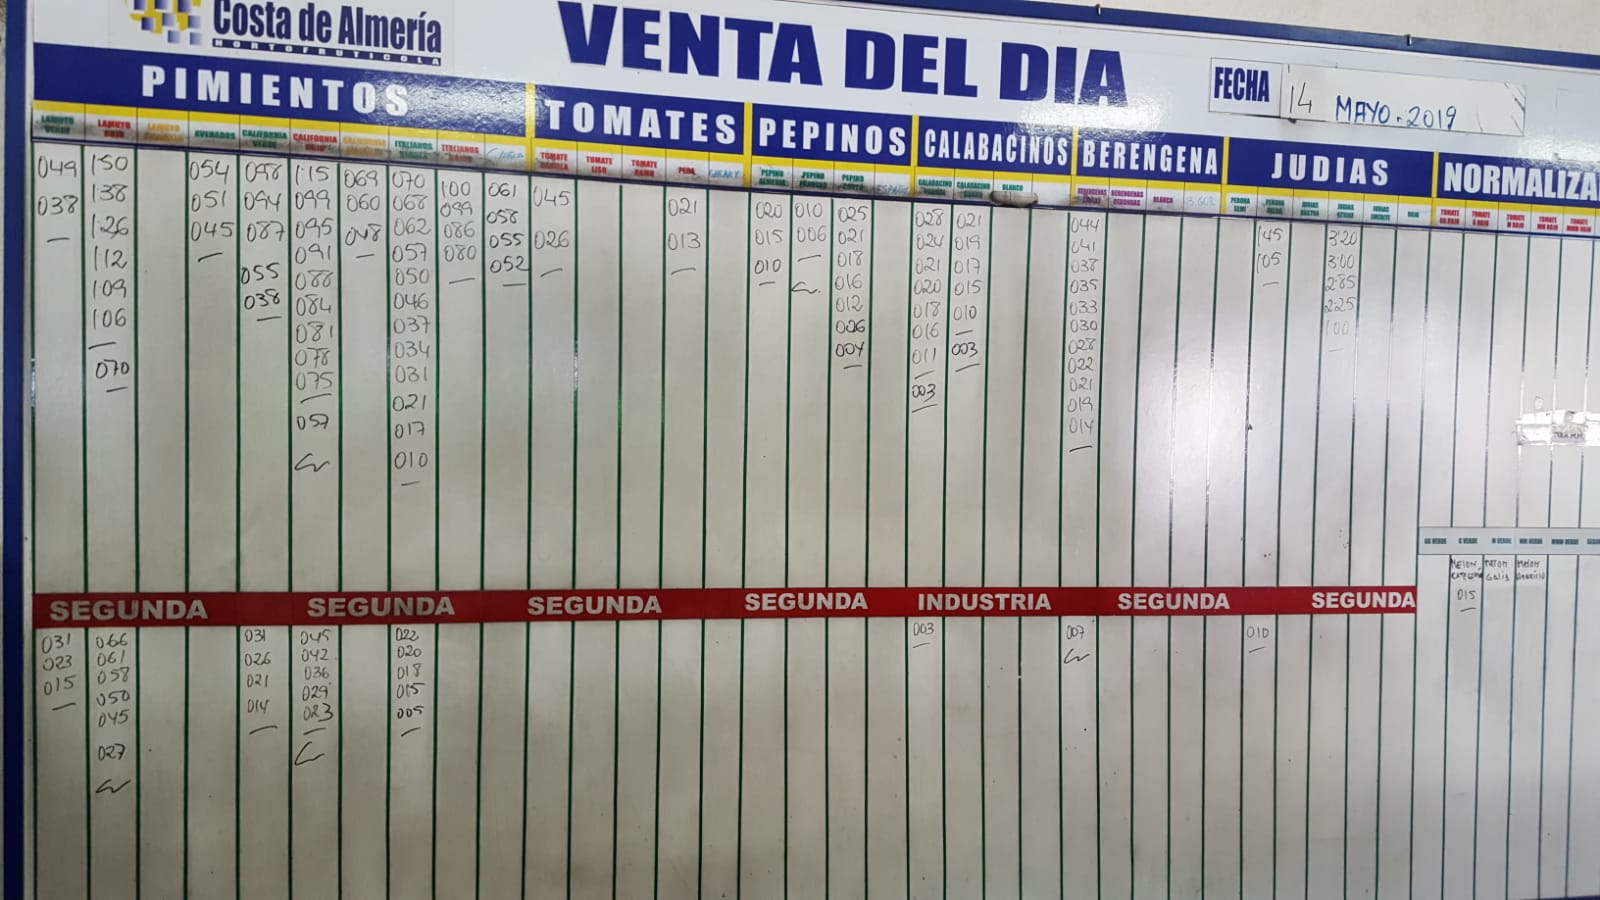 Costa de Almería
HORTOFRUTICOLA
VENTA DEL DIA
FECHA
14 MAYO-2019
PIMIENTOS
TOMATES
PEPINOS
CALABACINOS
BERENGENA
JUDIAS
NORMALIZA
LAMUYO VERDE
LAMUYO ROJO
ASURADOS
CALIFORNIA VERDE
CALIFORNIA ROJO
ITALIANOS VERDE
ITALIANOS ROJO
TOMATE LISO
TOMATE RAMO
PERA
PEPINO ALMERIA
PEPINO FRANCES
PEPINO CORTO
CALABACINO
CALABACINO
BLANCO
BERENGENAS LARGAS
BERENGENAS REDONDAS
BLANCA
PERONA SEMI
PERONA ROJA
JUDIAS RASTRA
JUDIAS STRIKE
JUDIAS
ROJO
TOMATE GG ROJO
TOMATE G ROJO
TOMATE M ROJO
TOMATE MM ROJO
TOMATE MMM ROJO
049
038
150
138
126
112
109
106
070
054
051
045
098
094
087
055
038
115
099
095
091
088
084
081
078
075
057
069
060
048
070
068
062
057
050
046
037
034
031
021
017
010
100
099
086
080
061
058
055
052
045
026
021
013
020
015
010
010
006
025
021
018
016
012
006
004
028
024
021
020
018
016
011
003
021
019
017
015
010
003
044
041
038
035
033
030
028
022
021
019
014
145
105
3'20
3'00
2'85
2'25
1'00
GG VERDE
G VERDE
M VERDE
MM VERDE
MMM VERDE
MELON
MELON GALIA
MELON AMARILLO
015
SEGUNDA
SEGUNDA
SEGUNDA
SEGUNDA
INDUSTRIA
SEGUNDA
SEGUNDA
031
023
015
066
061
058
050
045
027
031
026
021
014
045
042
036
029
023
022
020
018
015
005
003
007
010